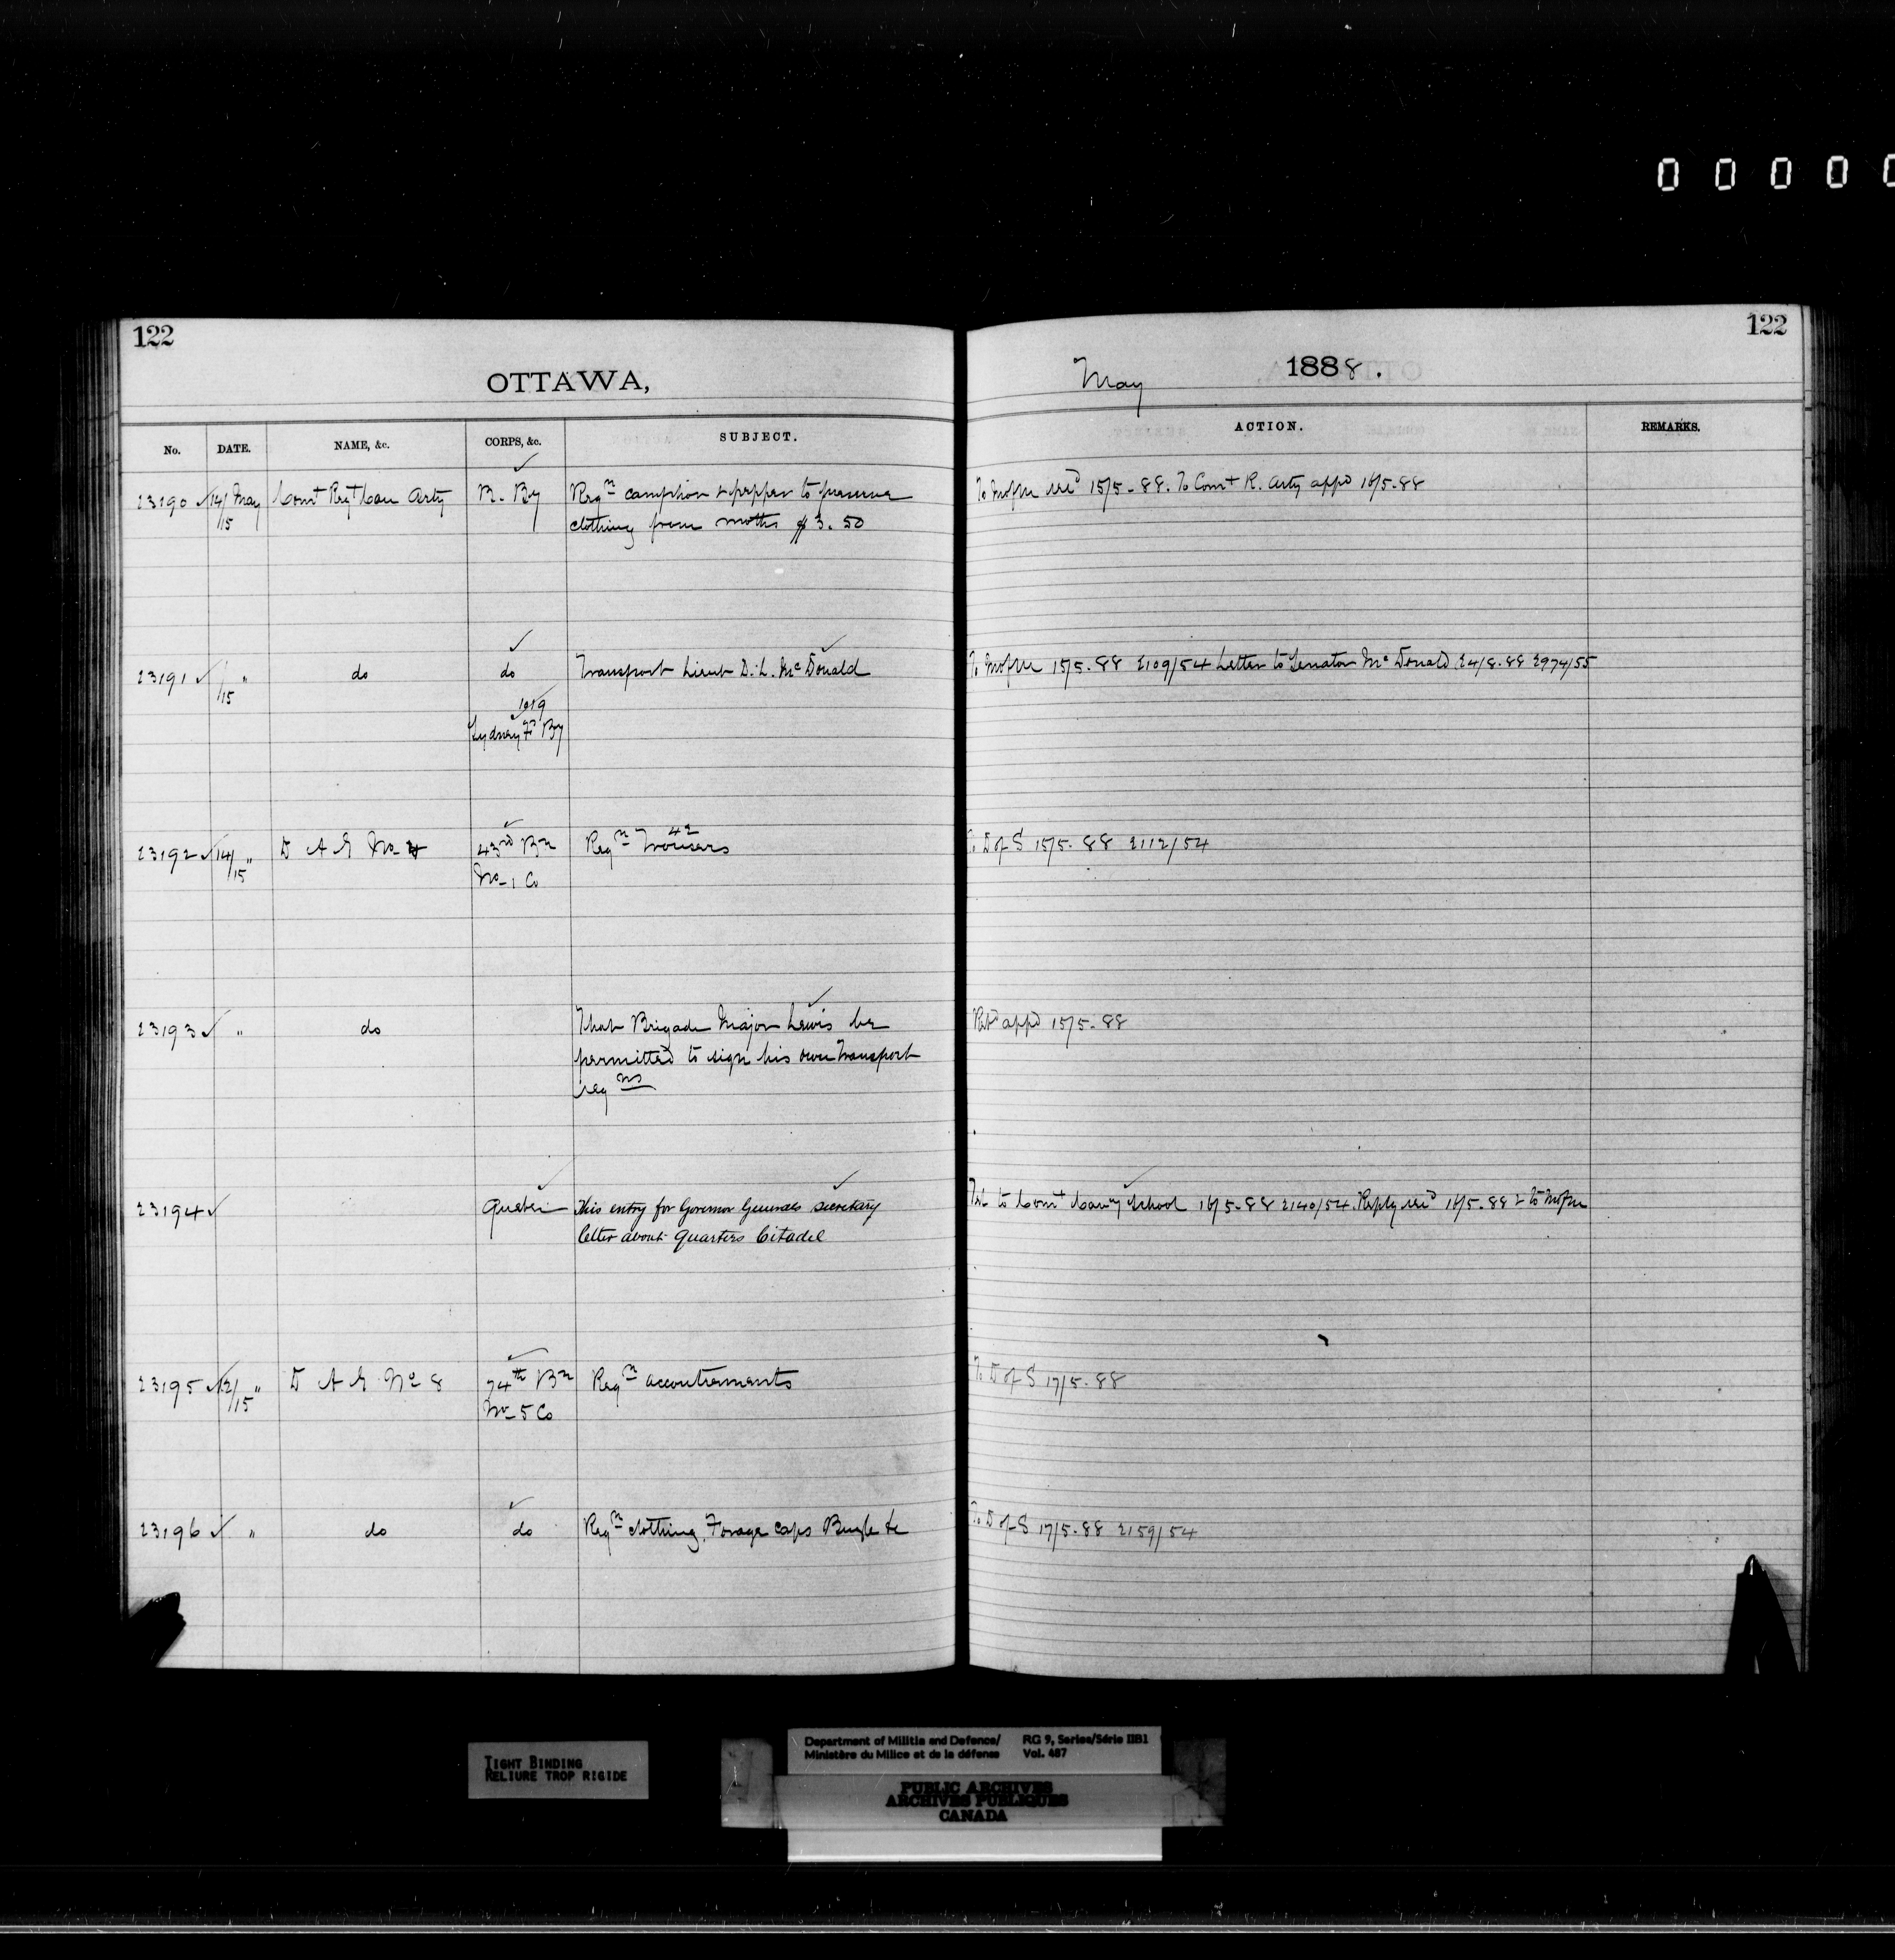 0 0 0 0 0
122
OTTAWA,
No. DATE. NAME, &c. CORPS, &c. SUBJECT.
23190 ✓ 14/15 May Comt Regt Can Arty B. By Reqn camphor & pepper to preserve
clothing from moths $3.50
23191 ✓ /15 " do do Transport Lieut D. L. McDonald
Sydney Fd By
23192 ✓ 14/15 " D A G No 4 43rd Bn Reqn 42 Trousers
No 1 Co
23193 ✓ " do That Brigade Major Lewis be
permitted to sign his own Transport
reqns
23194 ✓ Quebec This entry for Governor Generals secretary
letter about Quarters Citadel
23195 ✓ 12/15 " D A G No 8 74th Bn Reqn accoutrements
No 5 Co
23196 ✓ " do do Reqn clothing, Forage caps Bugle &c
122
May 1888.
ACTION. REMARKS.
To MofM 15/5-88. To Comt R. Arty appd 16/5-88
To MofM 15/5-88 2109/54 Letter to Senator McDonald 24/8-88 2974/55
To D of S 15/5-88 2112/54
appd 15/5-88
Tel to Comt Cavy School 16/5-88 2140/54. Reply 16/5-88 & to MofM
To D of S 17/5-88
To D of S 17/5-88 2159/54
TIGHT BINDING
RELIURE TROP RIGIDE
Department of Militia and Defence/ RG 9, Series/Série IIB1
Ministère du Milice et de la défense Vol. 487
PUBLIC ARCHIVES
ARCHIVES PUBLIQUES
CANADA